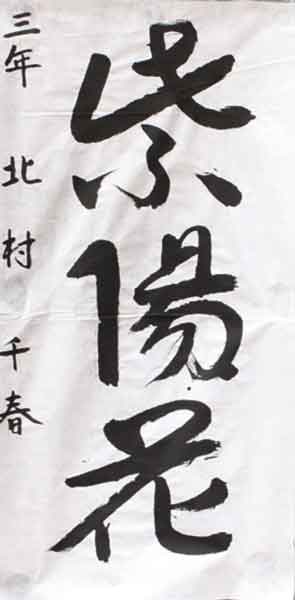 紫陽花
三年 北村 千春